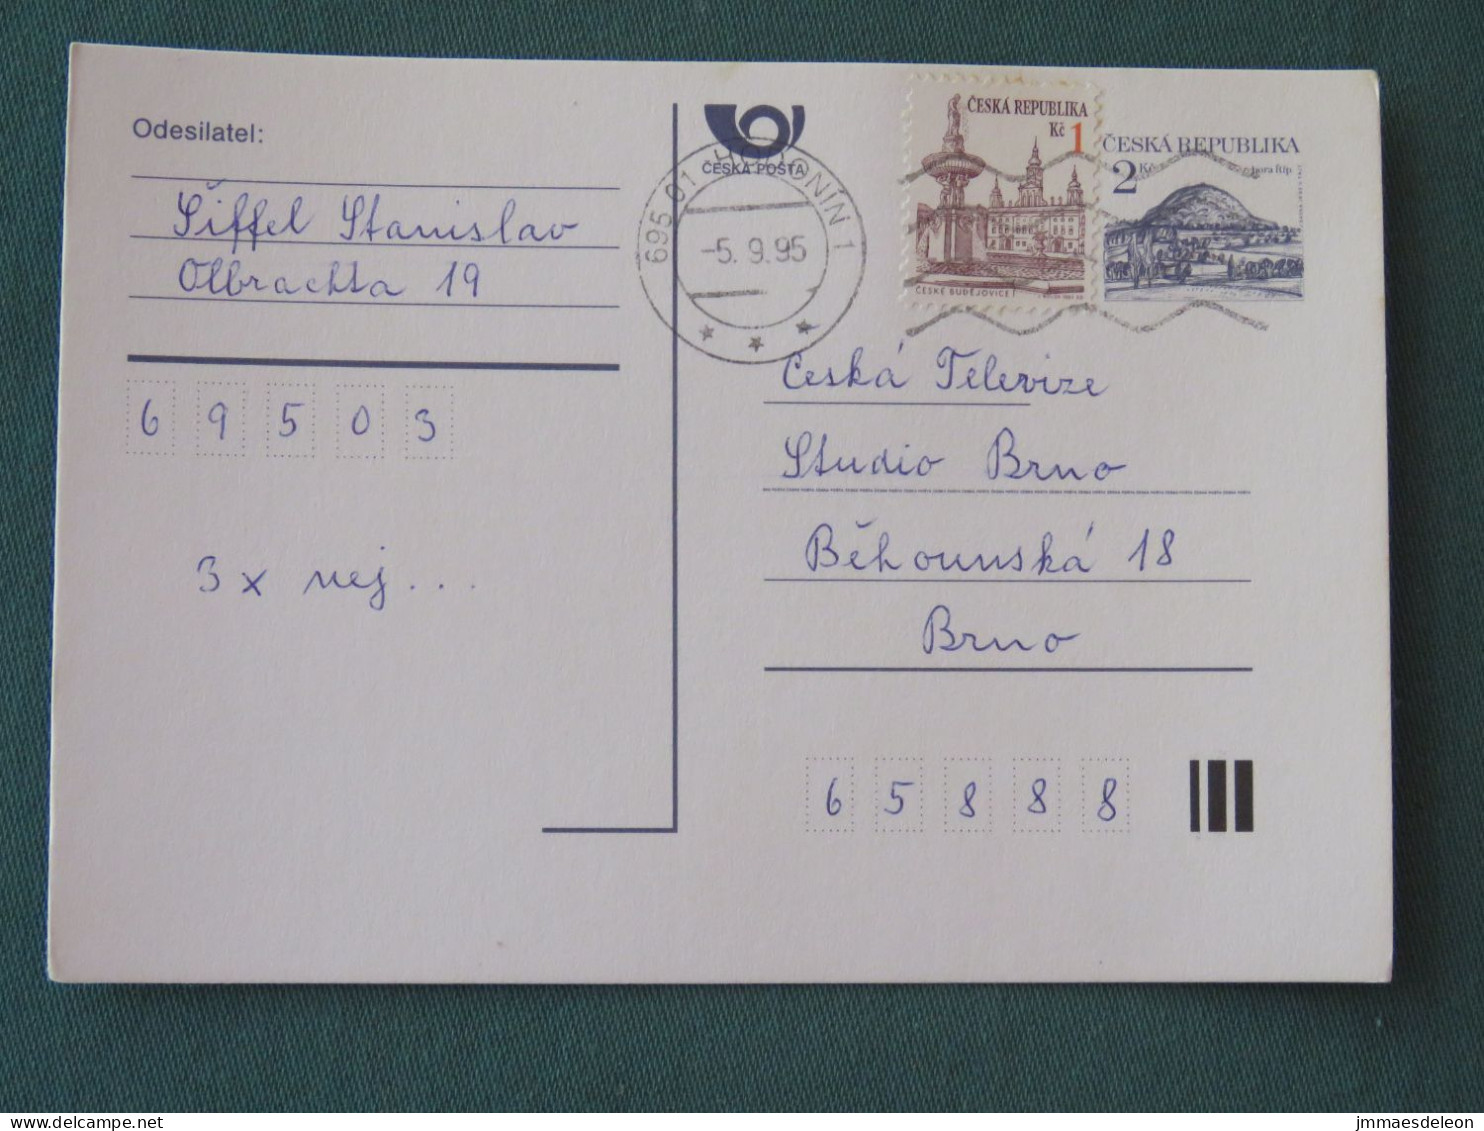 Odesilatel:
Šiffel Stanislav
Olbrachta 19
6 9 5 0 3
3 x nej...
ČESKÁ POŠTA
695 01 HODONÍN 1
-5. 9. 95
ČESKÁ REPUBLIKA
Kč 1
ČESKÉ BUDĚJOVICE
ČESKÁ REPUBLIKA
2 Kč
hora Říp
Česká Televize
Studio Brno
Běhounská 18
Brno
6 5 8 8 8
jmmaesdeleon